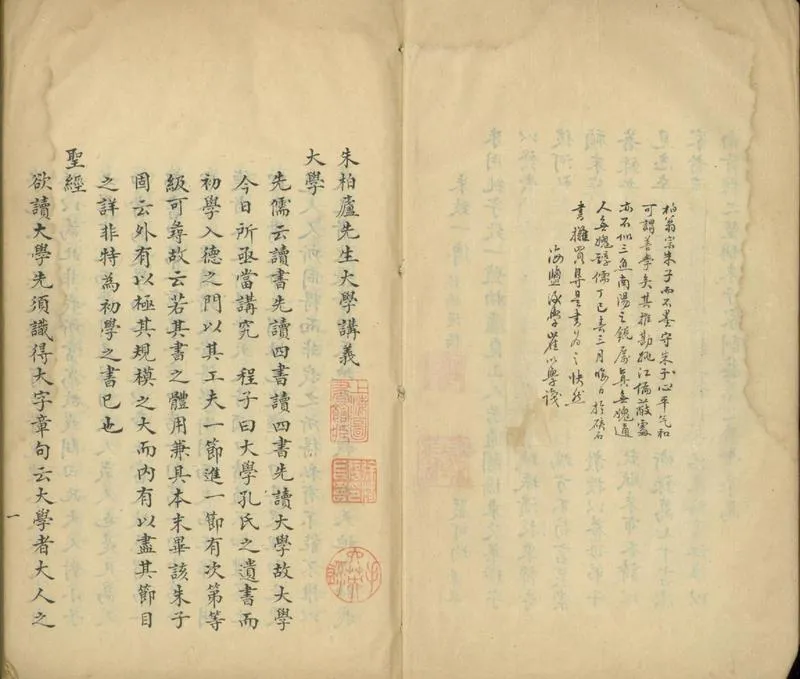 柏翁宗朱子而不墨守朱子心平气和
可謂善學矣其推勘姚江偏蔽處
亦不似三魚南陽之 厲真無愧通
人無愧醇儒丁巳春三月晦日於硤石
書攤買得是書為之快然
海鹽後學崔以學識
朱柏廬先生大學講義
上海圖書館藏
大學
先儒云讀書先讀四書讀四書先讀大學故大學
今日所亟當講究 程子曰大學孔氏之遺書而
初學入德之門以其工夫一節進一節有次第等
級可尋故云若其書之體用兼具本末畢該朱子
固云外有以極其規模之大而內有以盡其節目
之詳非特為初學之書已也
聖經
欲讀大學先須識得大字章句云大學者大人之
一